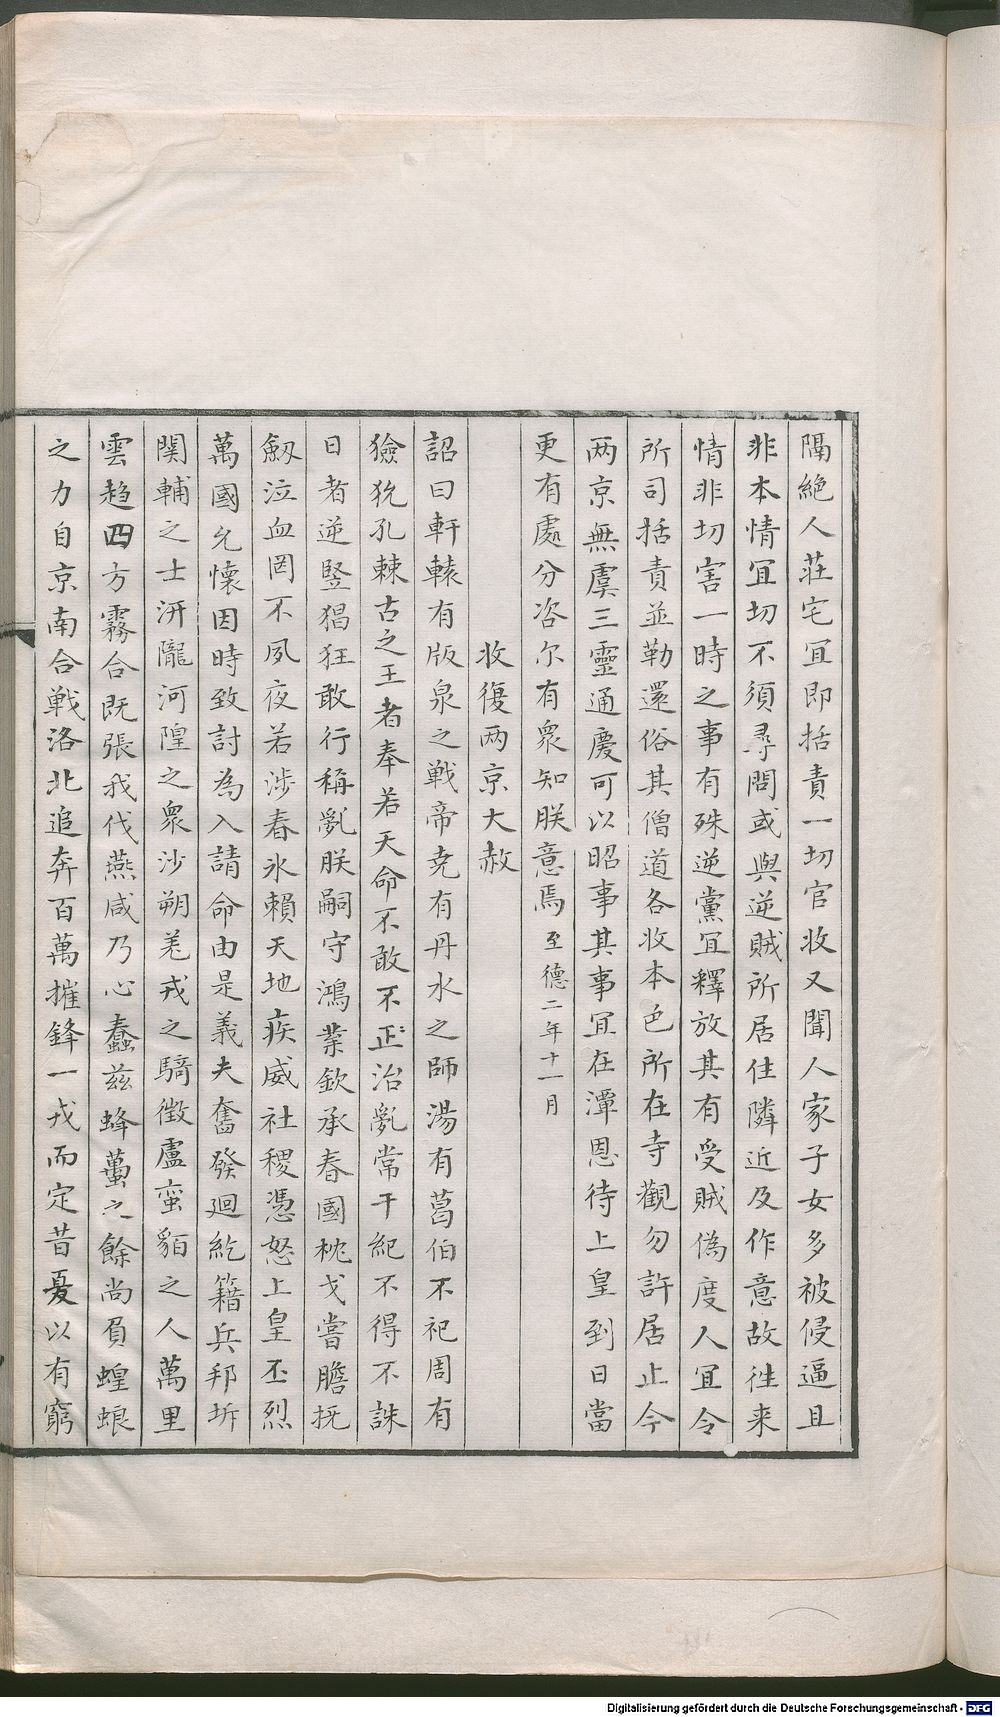 隔絶人莊宅宜即括責一切官收又聞人家子女多被侵逼且
非本情宜切不須尋問或與逆賊所居住隣近及作意故徃来
情非切害一時之事有殊逆黨宜釋放其有受賊偽度人宜令
所司括責並勒還俗其僧道各收本色所在寺觀勿許居止今
两京無虞三靈通慶可以昭事其事宜在潭恩待上皇到日當
更有處分咨尔有衆知朕意焉至德二年十一月
收復两京大赦
詔曰軒轅有版泉之戦帝尭有丹水之師湯有葛伯不祀周有
獫狁孔棘古之王者奉若天命不敢不正治亂常干紀不得不誅
日者逆竪猖狂敢行稱亂朕嗣守鴻業欽承春國枕戈嘗膽抚
劔泣血罔不夙夜若涉春氷賴天地疾威社稷憑怒上皇丕烈
萬國允懷因時致討為入請命由是義夫奮發廻紇籍兵邦圻
関輔之士汧隴河隍之衆沙朔羌戎之騎徴盧蛮貊之人萬里
雲趋四方霧合既張我伐燕咸乃心蠢兹蜂蠆之餘尚負蝗蜋
之力自京南合戦洛北追奔百萬摧鋒一戎而定昔夏以有窮
Digitalisierung gefördert durch die Deutsche Forschungsgemeinschaft - DFG